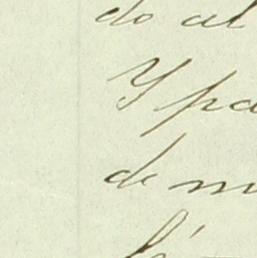 do al
Y pa
de m